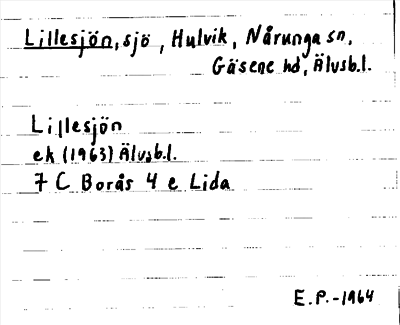 Lillesjön, sjö, Hulvik, Nårunga sn,
Gäsene hd, Älvsb.l.
Lillesjön
ek (1963) Älvsb.l.
7 C Borås 4 e Lida
E.P.-1964